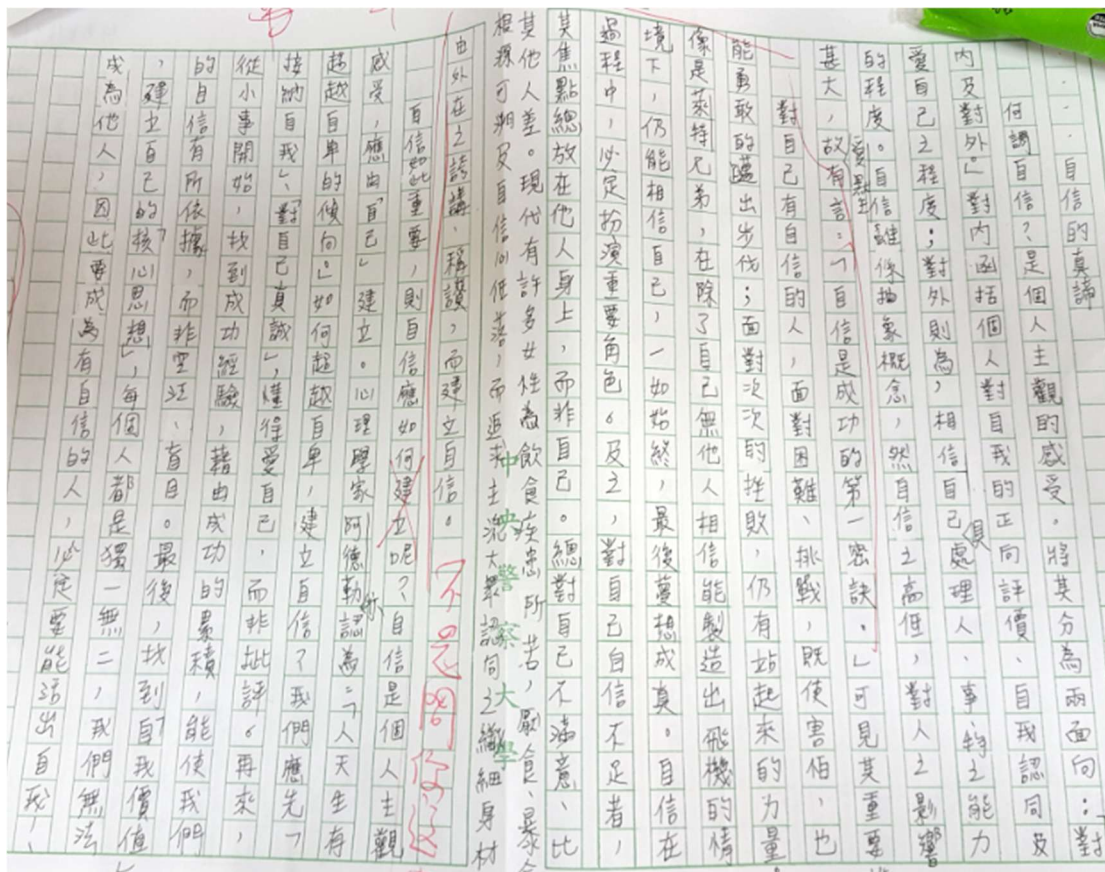 自信的真諦
何謂自信?是個人主觀的感受。將其分為兩面向:對
內及對外。」對內函括個人對自我的正向評價、自我認同及
愛自己之程度;對外則為,相信自己處理人、事、物之能力
的程度。自信雖係抽象概念,然自信之高低,對人之影響
甚大,故有言:「自信是成功的第一密訣。」可見其重要
對自己有自信的人,面對困難、挑戰,既使害怕,也
能勇敢的躍出步伐;面對次次的挫敗,仍有站起來的力量
像是萊特兄弟,在除了自己無他人相信能製造出飛機的情
境下,仍能相信自己,一如始終,最後蔓想成真。自信在
過程中,必定扮演重要角色。反之,對自己自信不足者,
其焦點總放在他人身上,而非自己。總對自己不滿意、比
其他人差。現代有許多女性為飲食疾患所苦,厭食、暴食
根探可期反自信心低落,而追求主流大眾認同之纖細身材
由外在之讚,稱讚,而建立自信。
不是問你這
自信如此重要,則自信應如何建立呢?自信是個人主觀
感受,應由「自己」建立。心理學家阿德勒認為:「人天生有
超越自卑的傾向。」如何超越自卑,建立自信?我們應先「
接納自我」、「對自己真誠」,懂得愛自己,而非批評。再來,
從小事開始,找到成功經驗,藉由成功的累積,能使我們
的自信有所依據,而非空泛、盲目。最後,找到「自我價值
」,建立自己的「核心思想」,每個人都是獨一無二,我們無法
成為他人,因此要成為有自信的人,必定要能活出自我、
中央警察大學